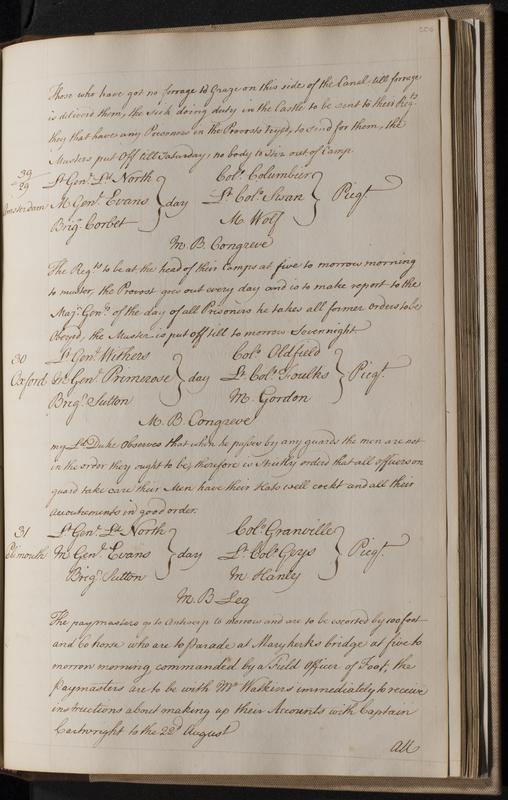 Those who have got no forrage to Graze on this side of the Canal till forrage
is deliverd them, the Sick doing duty in the Castle to be sent to their Regts
they that have any Prisoners in the Provosts tryed, to send for them, the
Musters put Off till Saturday; no body to Stir out of Camp.
39
29 Lt. Genl. Ld. North Coll. Columbine
Amsterdam M. Genl. Evans } day Lt. Coll. Swan } Picqt.
Brigr. Corbet M. Wolf
M. B. Congreve
The Regts to be at the head of their Camps at five to morrow morning
to muster, the Provost goes out every day and is to make report to the
Majr. Genll. of the day of all Prisoners he takes all former orders to be
Obeyed, the Muster is put off till to morrow Sevennight.
30 Lt. Genl. Withers Coll. Oldfield
Oxford M. Genl. Primerose } day Lt. Coll. Foulks } Picqt.
Brigr. Sutton M. Gordon
M. B. Congreve
my Ld. Duke Observes that when he passes by any guards the men are not
in the order they ought to be, therefore is Strictly orderd that all officers on
guard take care their Men have their Hats well cockt and all their
Accoutrements in good order.
31 Lt. Genl. Ld. North Coll. Granville
Plimouth M. Genl. Evans } day Lt. Coll. Guys } Picqt.
Brigr. Sutton M. Hanley
M. B Leg
The paymasters go to Antwerp to morrow and are to be escorted by 100 foot
and 60 horse who are to Parade at Marykerks bridge at five to
morrow morning, commanded by a Field Officer of Foot, the
Paymasters are to be with Mr. Walkins immediately to receive
instructions about making up their Accounts with Captain
Cartwright to the 22d August
all